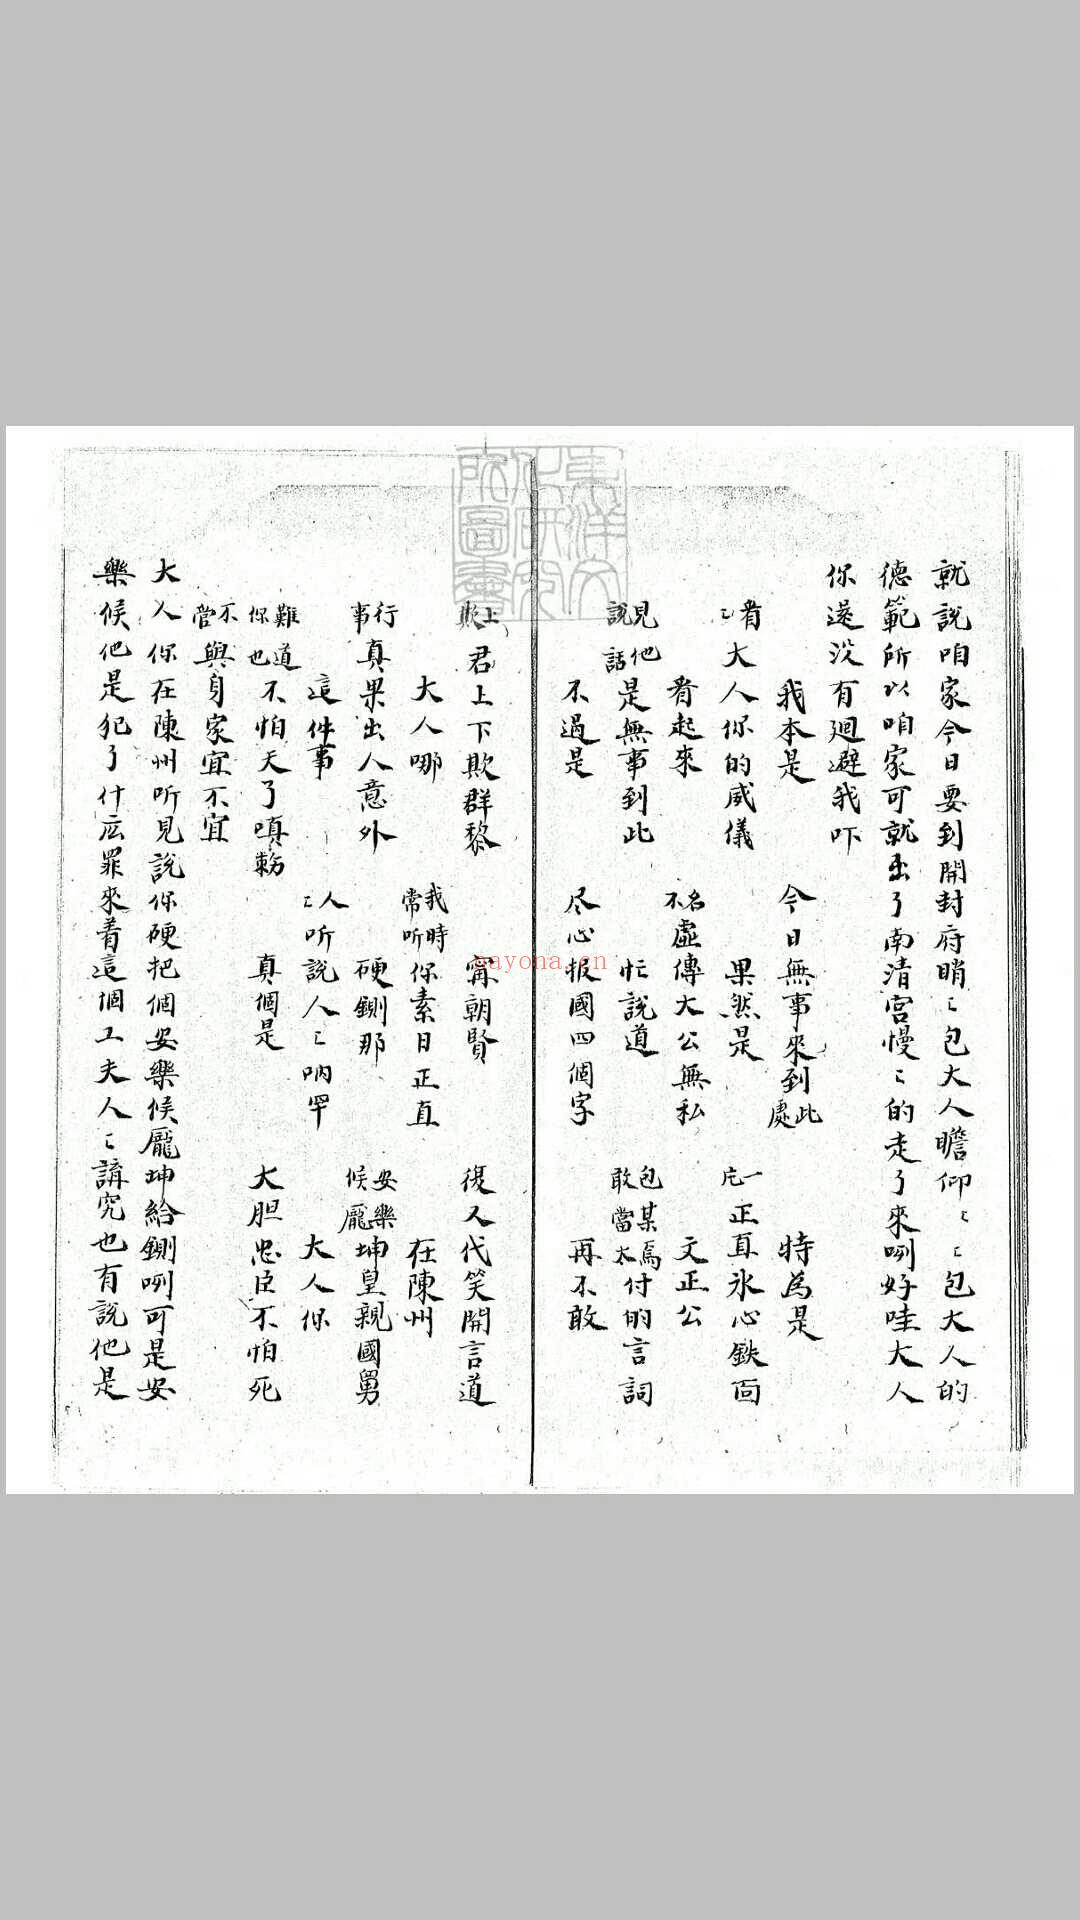 就說咱家今日要到開封府睄〻包大人瞻仰〻〻包大人的
德範所以咱家可就出了南清宮慢〻的走了來咧好哇大人
你遂沒有迴避我吓
我本是 今日無事來到此處 特為是
看〻大人你的威儀 果然是 一庀正直氷心鉄面
看起來 名不虛傳大公無私 文正公
見他說話是無事到此 忙說道 包某焉敢當太付的言詞
不過是 尽心报國四個字 再不敢
上欺君上下欺群黎 甯朝賢 復又代笑開言道
大人哪 我時常听你素日正直 在陳州
行事真果出人意外 硬鍘那 安樂候龐坤皇親國舅
這件事 人〻听說人〻吶罕 大人你
難道你也不怕天子嗔勑 真個是 大胆忠臣不怕死
不管與身家宜不宜
大人你在陳州听見說你硬把個安樂候龐坤給鍘咧可是安
樂候他是犯了什庅罪來着這個工夫人〻講究也有說他是
gayona.cn